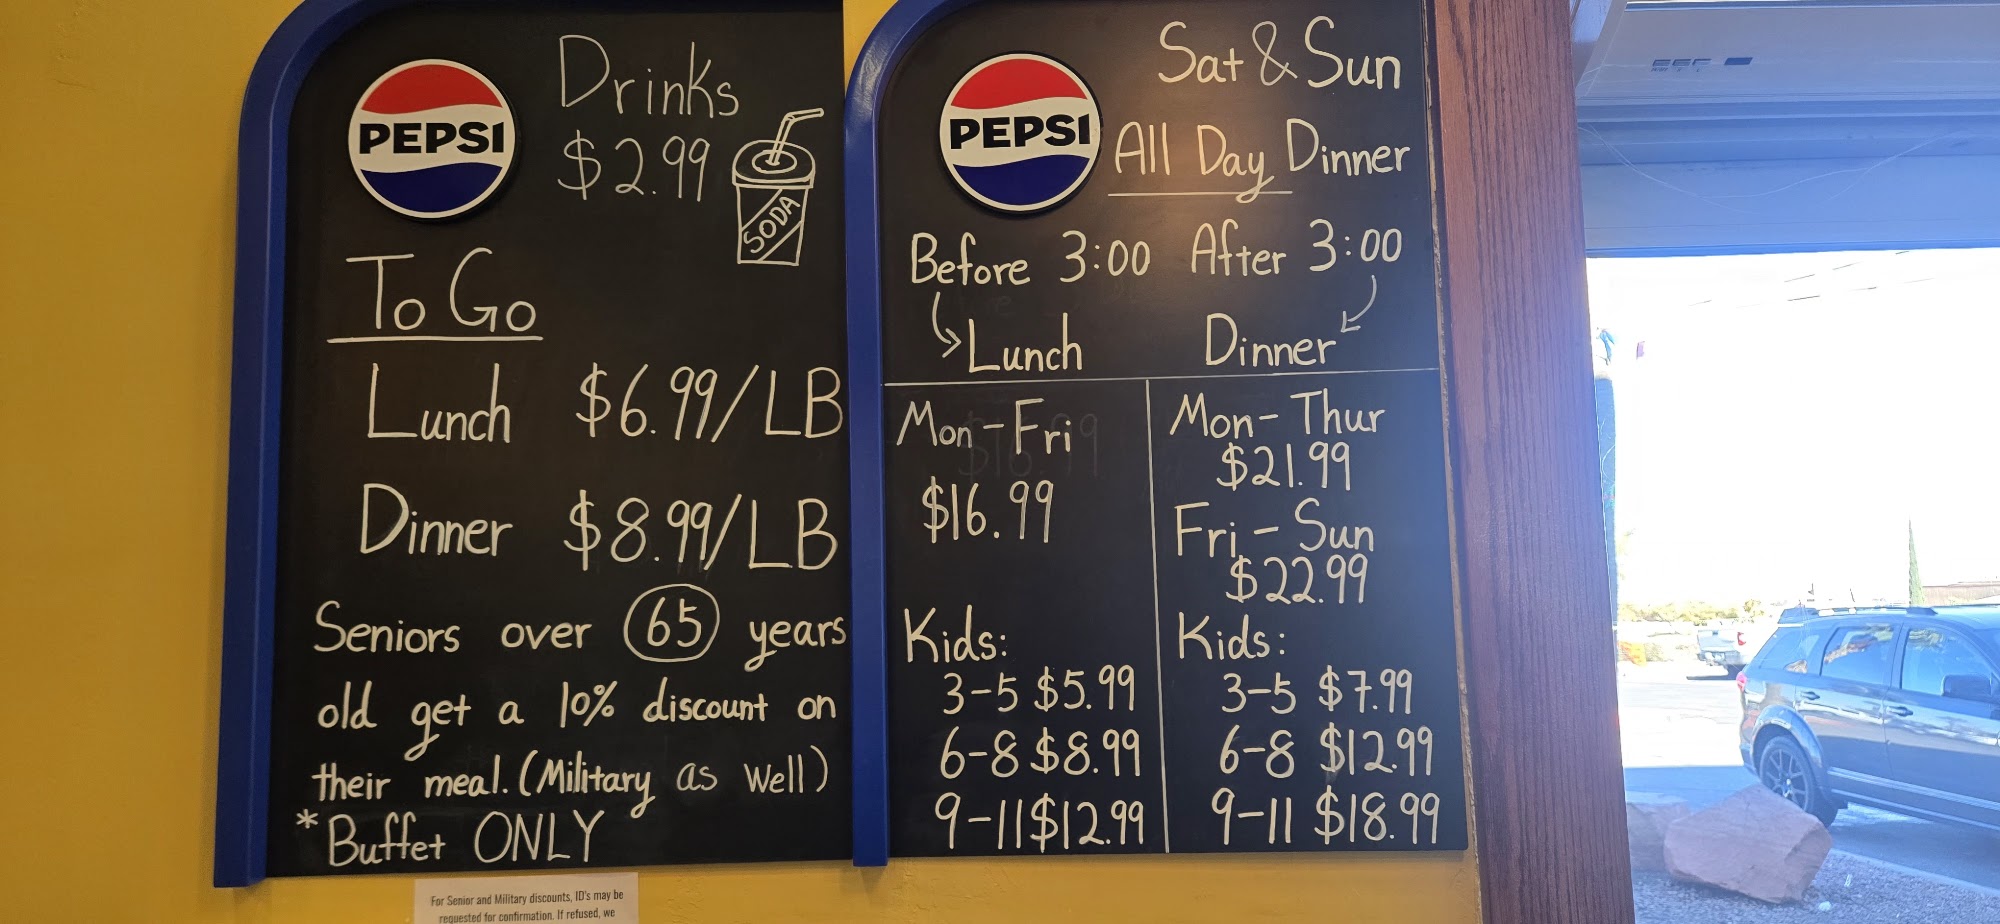 PEPSI
Drinks
$2.99
SODA
To Go
Lunch $6.99/LB
Dinner $8.99/LB
Seniors over 65 years
old get a 10% discount on
their meal. (Military as well)
*Buffet ONLY
For Senior and Military discounts, ID's may be
requested for confirmation. If refused, we
PEPSI
Sat & Sun
All Day Dinner
Before 3:00 After 3:00
Lunch Dinner
Mon-Fri
$16.99
Kids:
3-5 $5.99
6-8 $8.99
9-11 $12.99
Mon-Thur
$21.99
Fri-Sun
$22.99
Kids:
3-5 $7.99
6-8 $12.99
9-11 $18.99